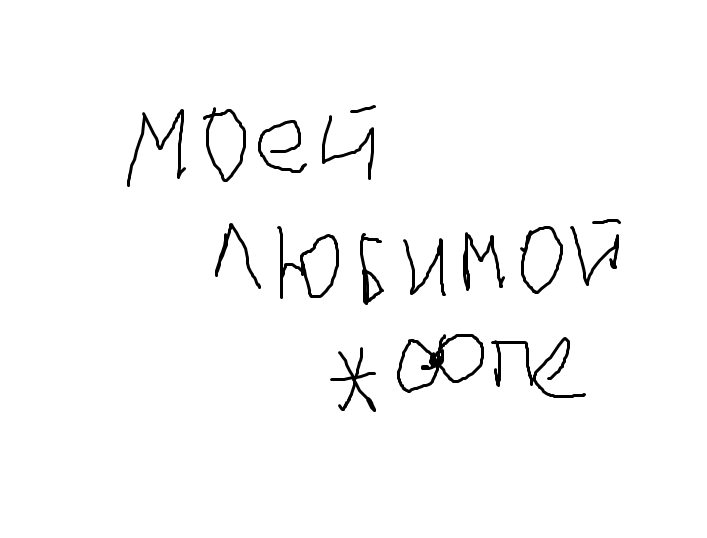 моей
любимой
жопе